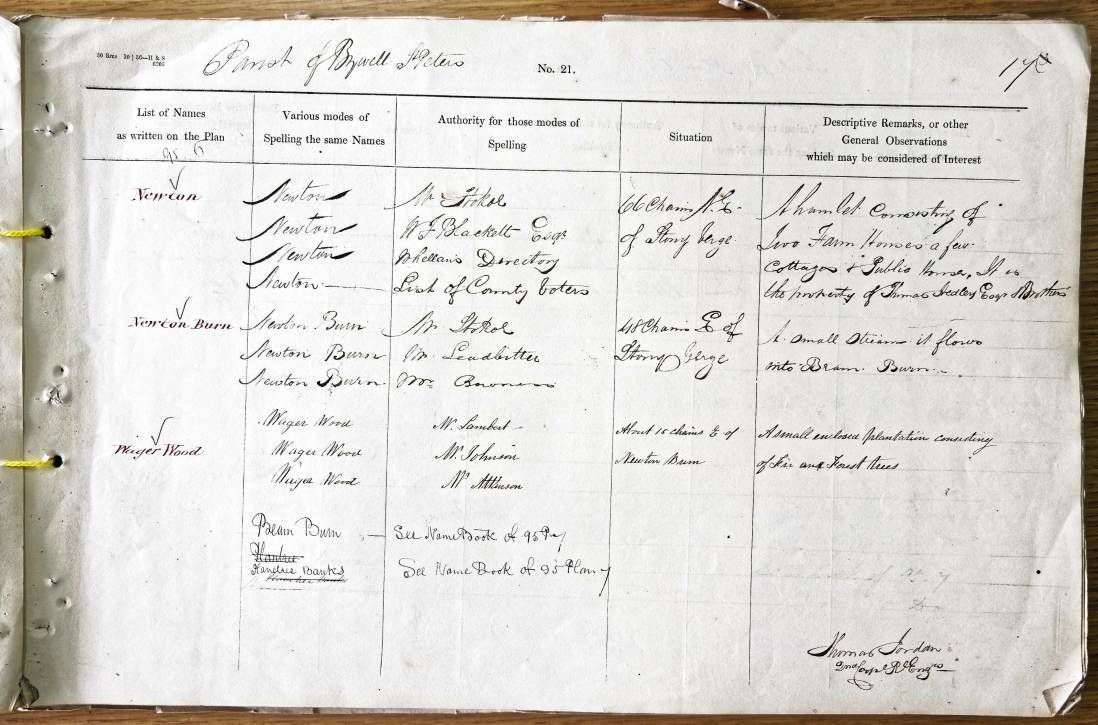 Parish of Bywell St Peters
No. 21.
17
List of Names
as written on the Plan
95 6
Various modes of
Spelling the same Names
Authority for those modes of
Spelling
Situation
Descriptive Remarks, or other
General Observations
which may be considered of Interest
Newton
Newton
Newton
Newton
Newton
Mr Stokoe
W F Blackett Esqr
Whellans Directory
List of County Voters
66 Chains N.E.
of Stony Verge
A hamlet consisting of
Two Farm Houses a few
Cottages & Public House, It is
the property of Thomas Hedley Esqr & Brothers
Newton Burn
Newton Burn
Newton Burn
Newton Burn
Mr Stokoe
Mr Leadbitter
Mr
48 Chains E of
Stony Verge
A small stream it flows
into Beam Burn
Wager Wood
Wager Wood
Wager Wood
Wager Wood
Mr Lambert
Mr Johnson
Mr Atkinson
About 15 chains E of
Newton Burn
A small enclosed plantation consisting
of Fir and Forest trees
Beam Burn
See Name Book of 95
Banks
See Name Book of 95 Plan 7
Thomas Jordan
2nd Corpl Rl Engrs